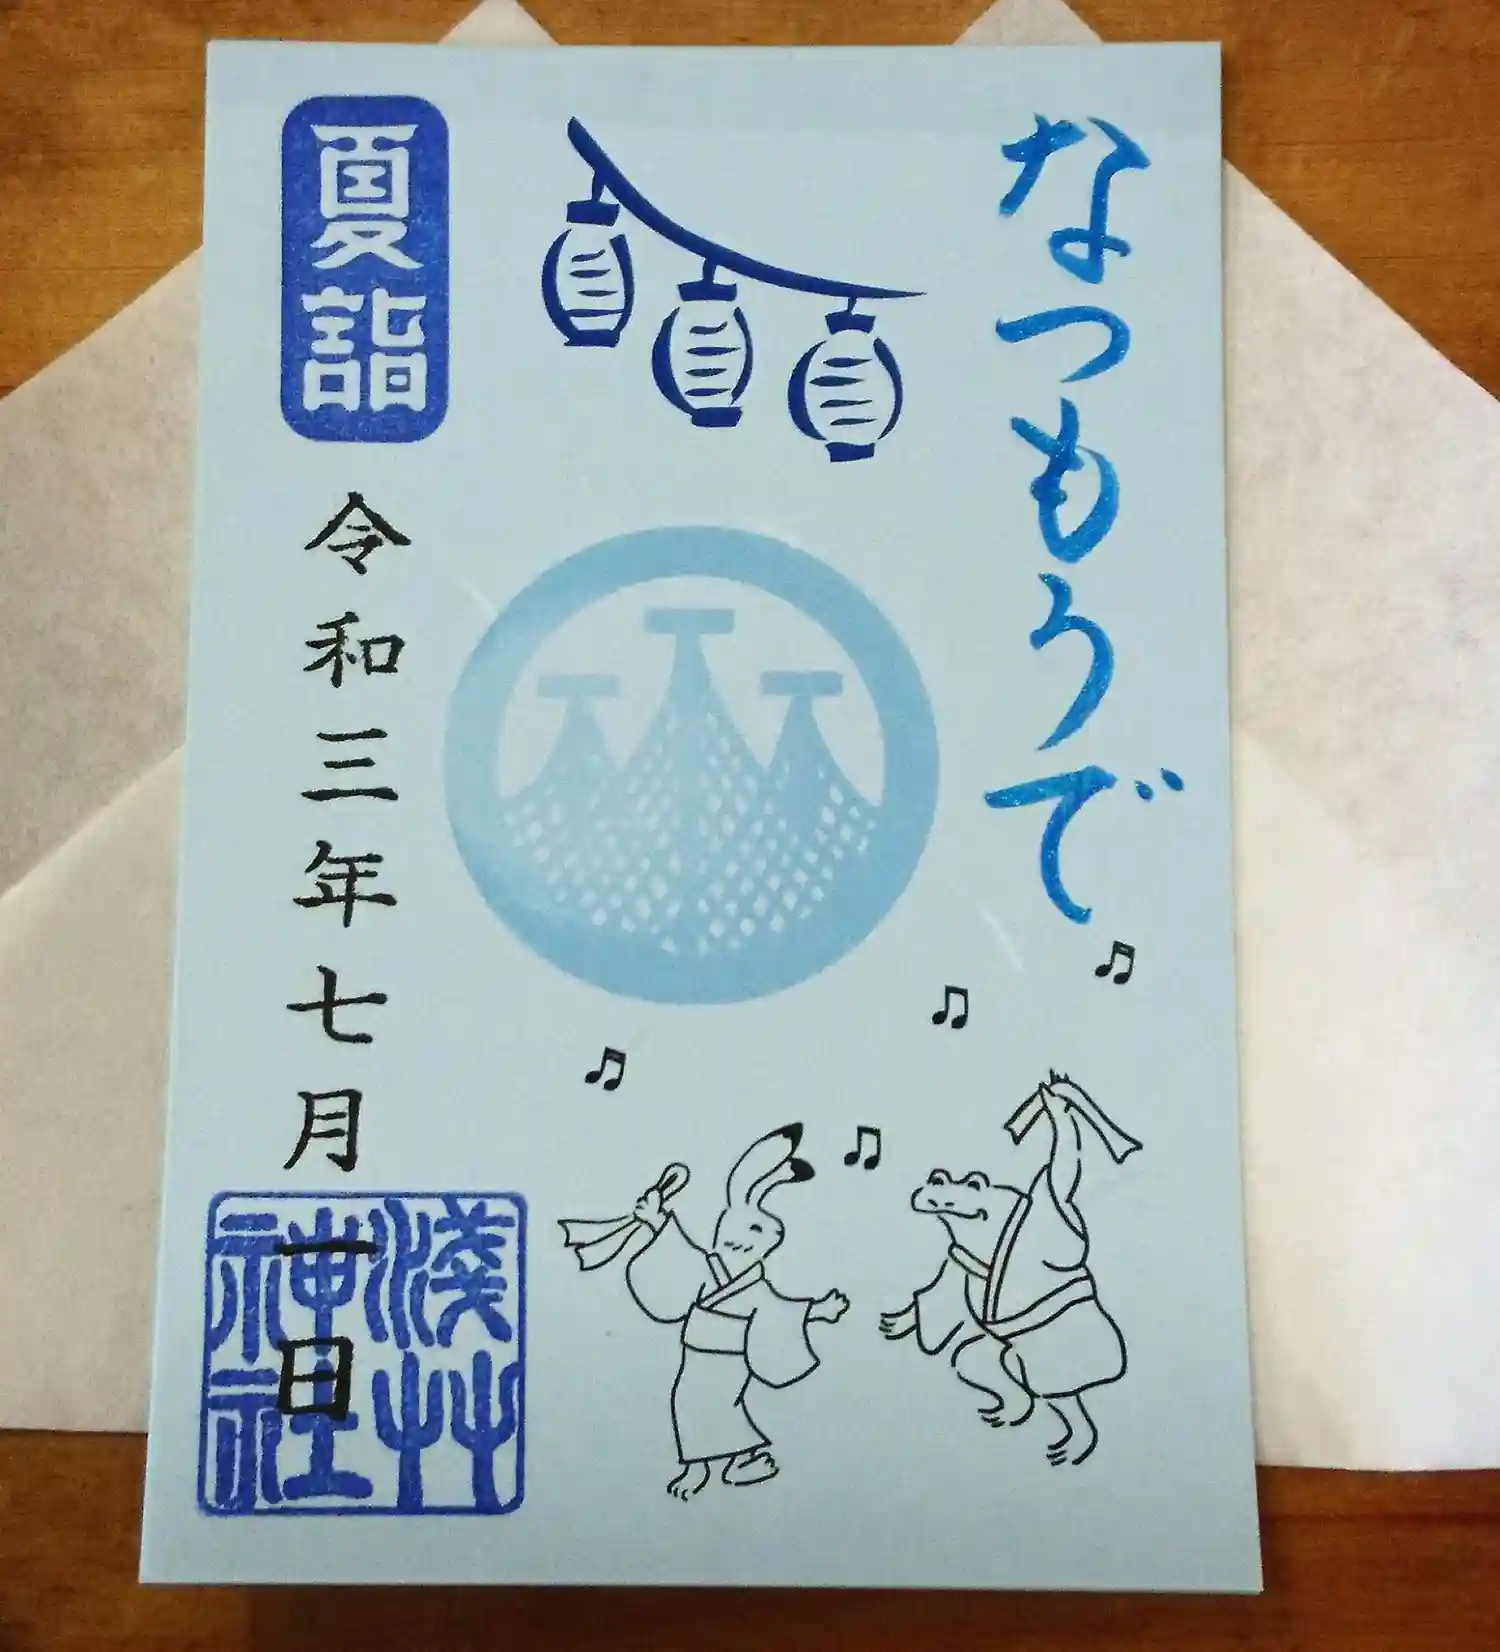 なつもうで
夏詣
令和三年七月一日
淺草神社